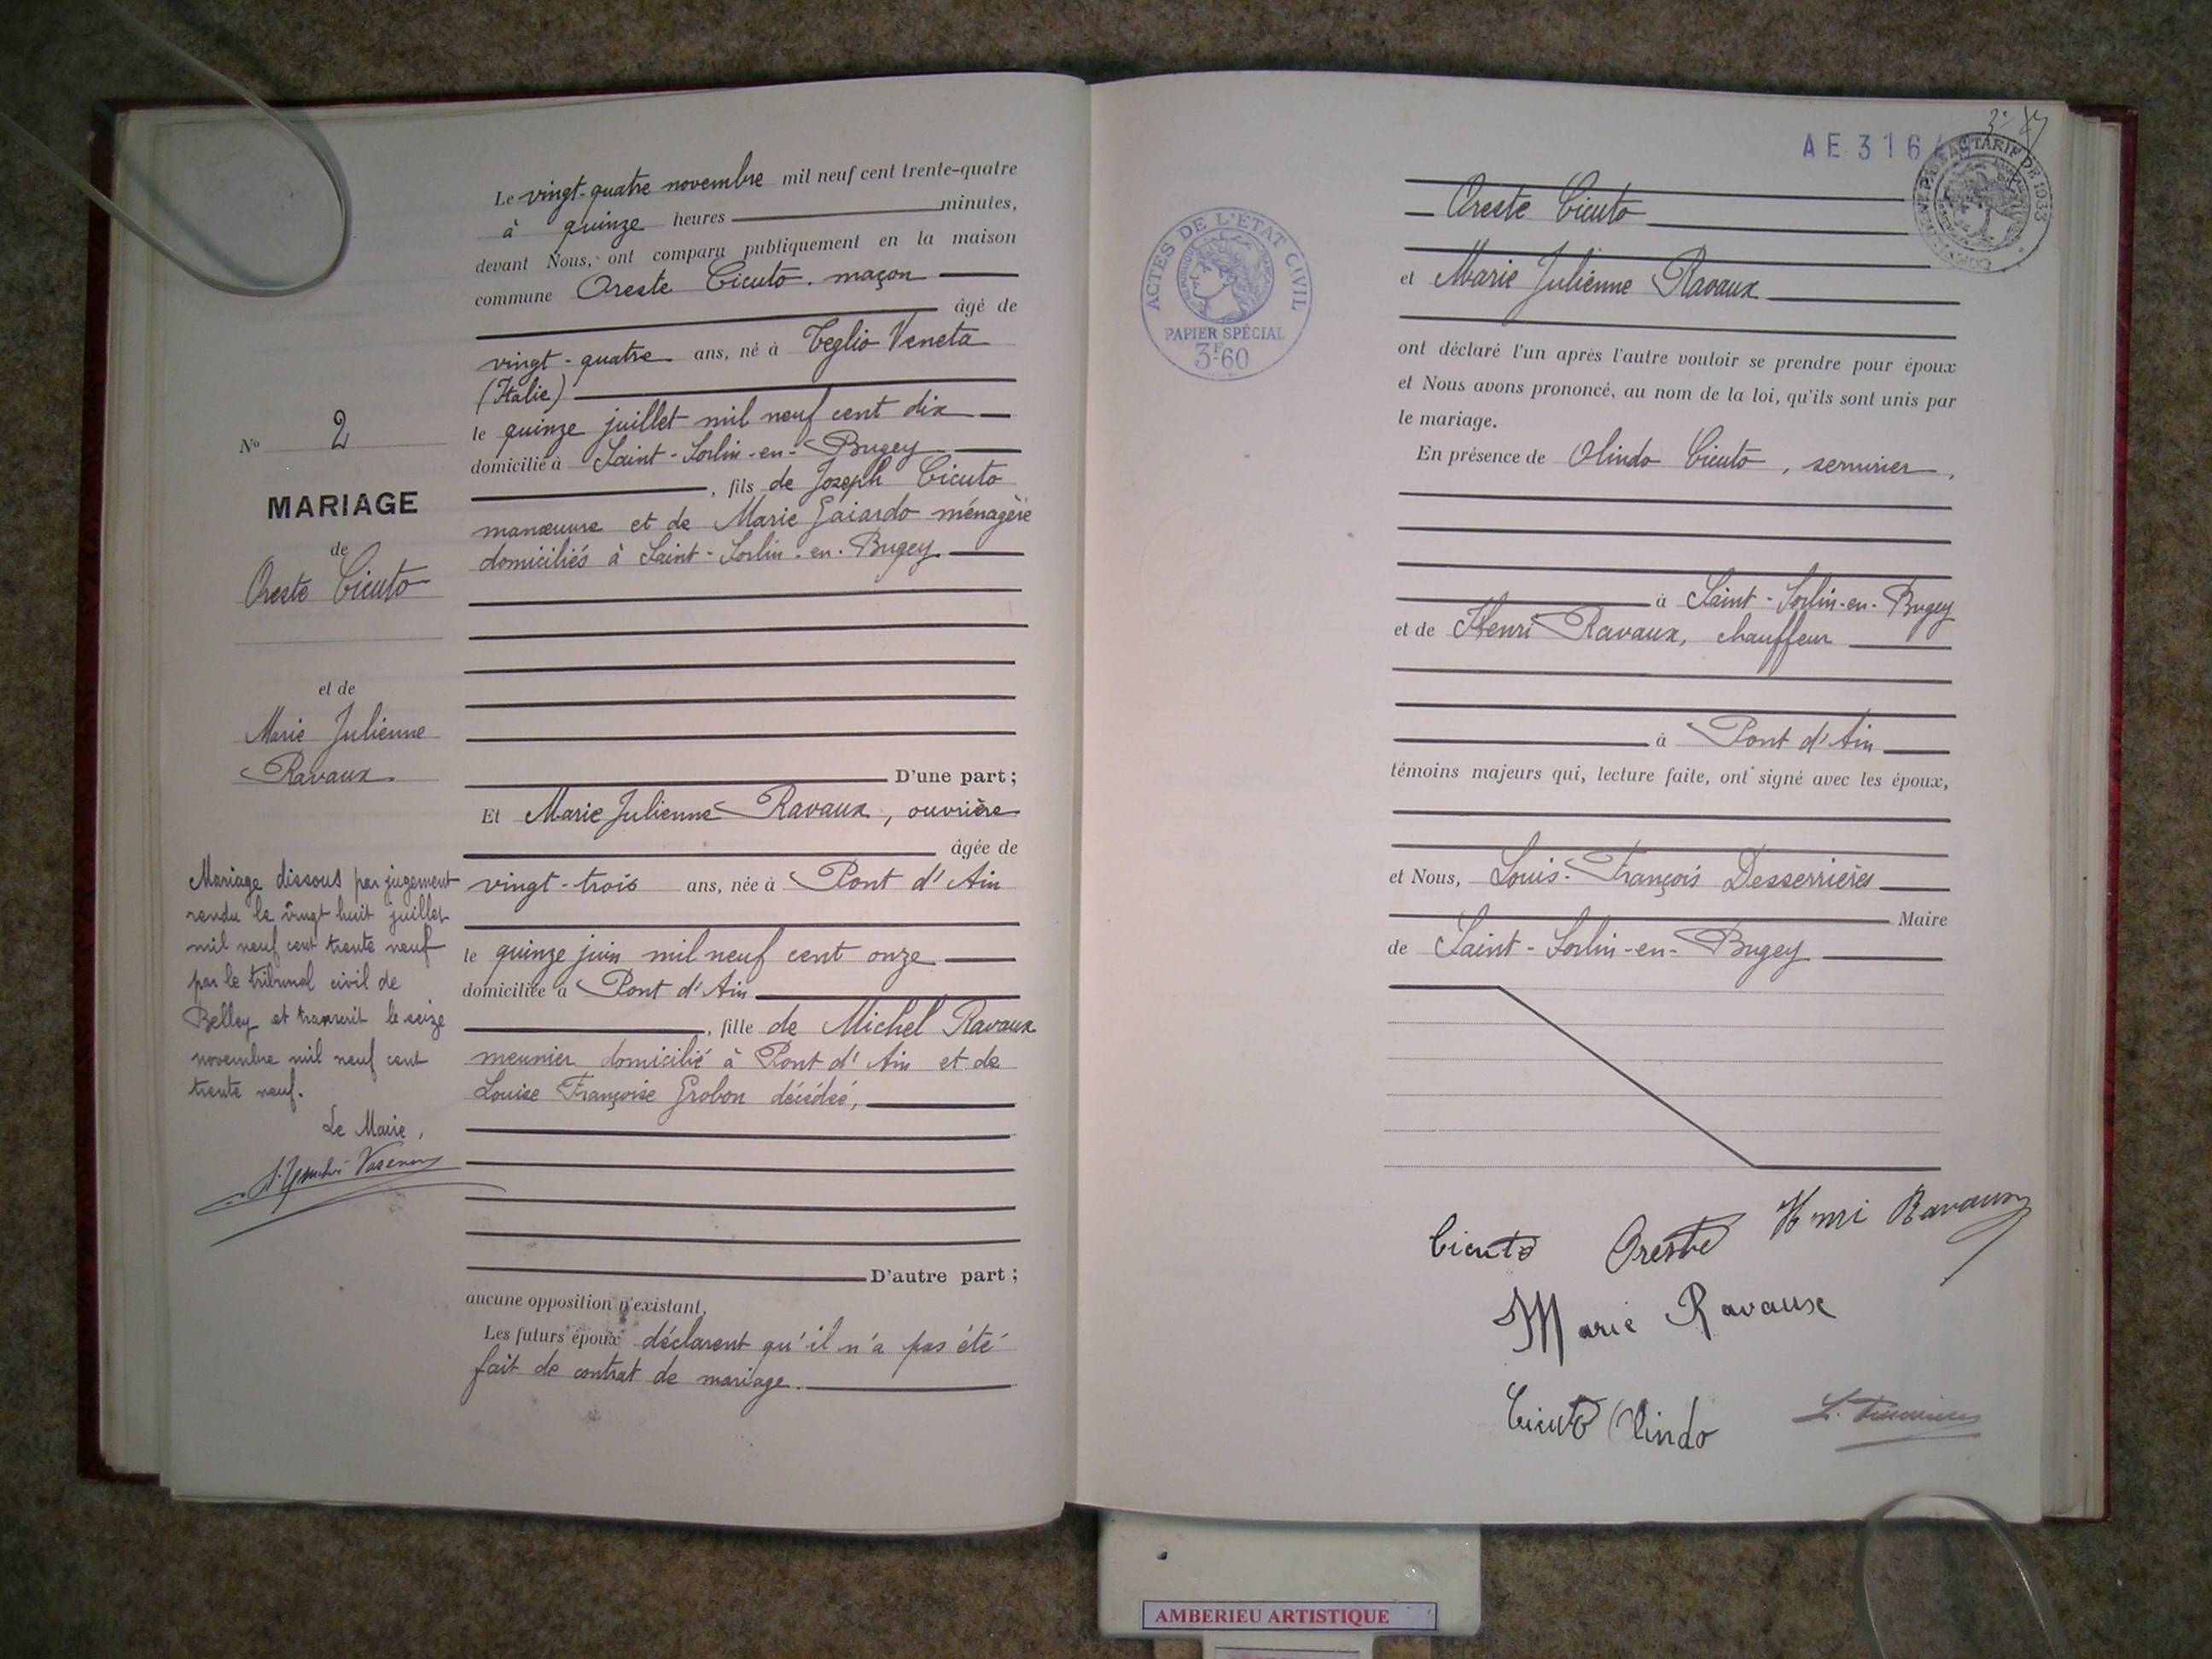 Le vingt-quatre novembre mil neuf cent trente-quatre
à quinze heures minutes,
devant Nous, ont comparu publiquement en la maison
commune Oreste Cicuto. maçon
âgé de
vingt-quatre ans, né à Teglio Veneta
(Italie)
le quinze juillet mil neuf cent dix
domicilié à Saint-Sorlin-en-Bugey
, fils de Joseph Cicuto
manœuvre et de Marie Gaiardo ménagère
domiciliés à Saint-Sorlin-en-Bugey
D'une part;
Et Marie Julienne Ravaux, ouvrière
âgée de
vingt-trois ans, née à Pont d'Ain
le quinze juin mil neuf cent onze
domiciliée à Pont d'Ain
, fille de Michel Ravaux
meunier domicilié à Pont d'Ain et de
Louise Françoise Grobon décédée,
D'autre part;
aucune opposition n'existant,
Les futurs époux déclarent qu'il n'a pas été
fait de contrat de mariage.
No 2
MARIAGE
de
Oreste Cicuto
et de
Marie Julienne
Ravaux.
Mariage dissous par jugement
rendu le vingt huit juillet
mil neuf cent trente neuf
par le tribunal civil de
Belley et transcrit le seize
novembre mil neuf cent
trente neuf.
Le Maire,
AE 316
TARIF DE 1933
ACTES DE L'ÉTAT CIVIL
PAPIER SPÉCIAL
3F60
Oreste Cicuto
et Marie Julienne Ravaux
ont déclaré l'un après l'autre vouloir se prendre pour époux
et Nous avons prononcé, au nom de la loi, qu'ils sont unis par
le mariage.
En présence de Olindo Cicuto, serrurier,
à Saint-Sorlin-en-Bugey
et de Henri Ravaux, chauffeur
à Pont d'Ain
témoins majeurs qui, lecture faite, ont signé avec les époux,
et Nous, Louis-François Desserrières
Maire
de Saint-Sorlin-en-Bugey
Cicuto Oreste Henri Ravaux
Marie Ravaux
Cicuto Olindo
AMBERIEU ARTISTIQUE